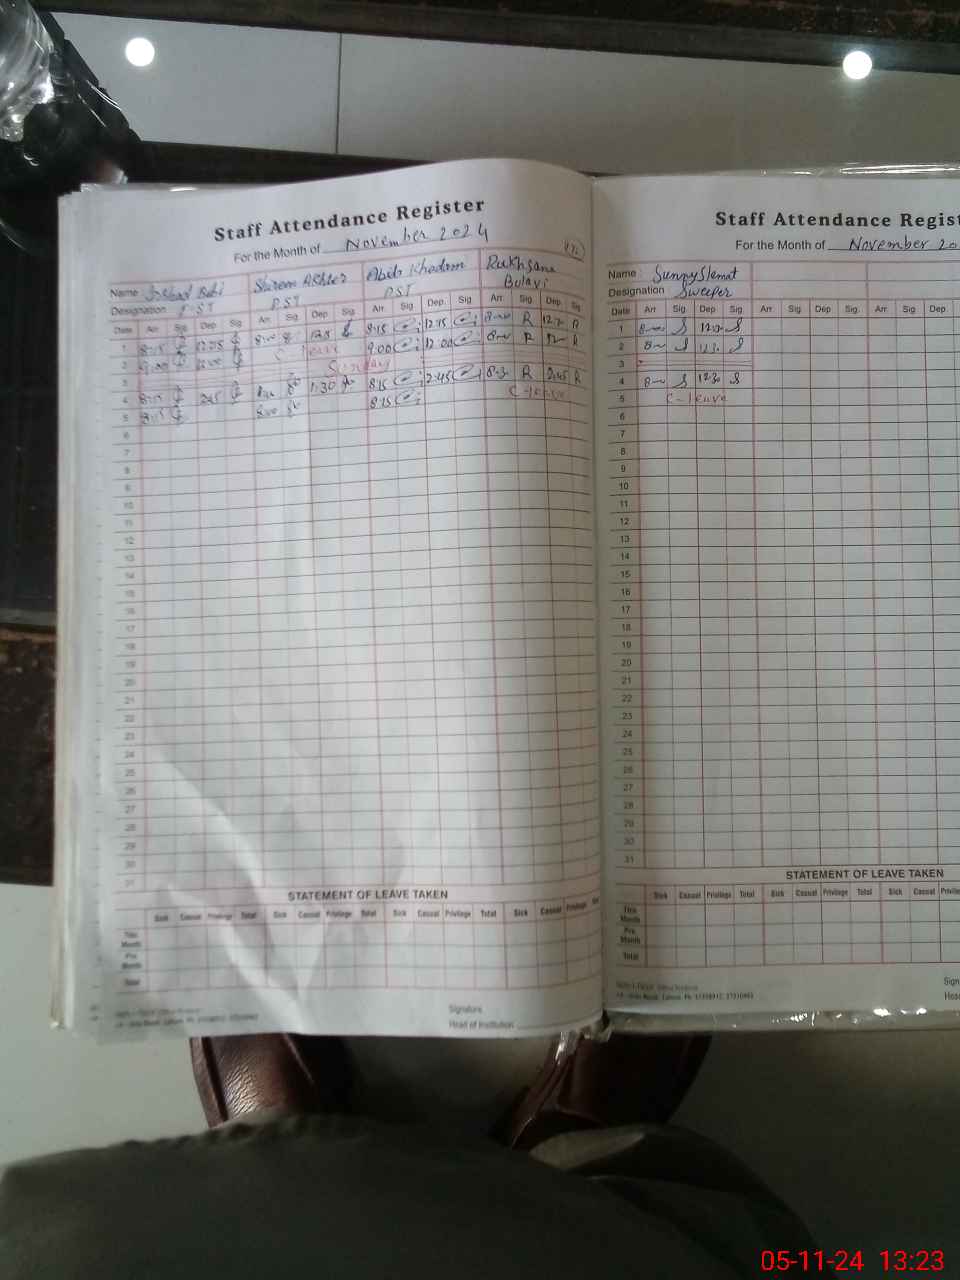 Staff Attendance Register
For the Month of November 2024
Name Bibi Shirem Akhter Abib Khadam Rukhsana
Designation PST PST PST Bulavi
Date Arr Sig Dep Sig Arr Sig Dep Sig Arr Sig Dep Sig Arr Sig Dep Sig
1 8-15 12:15 8:15 12:15 R R
2 9.00 C leave 9:00 12:00 R R
3 Sunday
4 8:15 245 1:30 8:15 2:45 8-30 R 2:45 R
5 8:15 8:00 8:15 C-leave
6
7
8
9
10
11
12
13
14
15
16
17
18
19
20
21
22
23
24
25
26
27
28
29
30
31
STATEMENT OF LEAVE TAKEN
Sick Casual Privilege Total Sick Casual Privilege Total Sick Casual Privilege Total Sick Casual Privilege
This Month
Pre Month
Total
Signature
Head of Institution
Staff Attendance Regist
For the Month of November 20
Name : Sunny Slemat
Designation Sweeper
Date Arr Sig Dep Sig. Arr Sig. Dep Sig. Arr Sig. Dep
1 S 12:30 S
2 S 12:30 S
3
4 S 12:30 S
5 C-leave
6
7
8
9
10
11
12
13
14
15
16
17
18
19
20
21
22
23
24
25
26
27
28
29
30
31
STATEMENT OF LEAVE TAKEN
Sick Casual Privilege Total Sick Casual Privilege Total Sick Casual Privilege
This Month
Pre Month
Total
Sign
Head
05-11-24 13:23